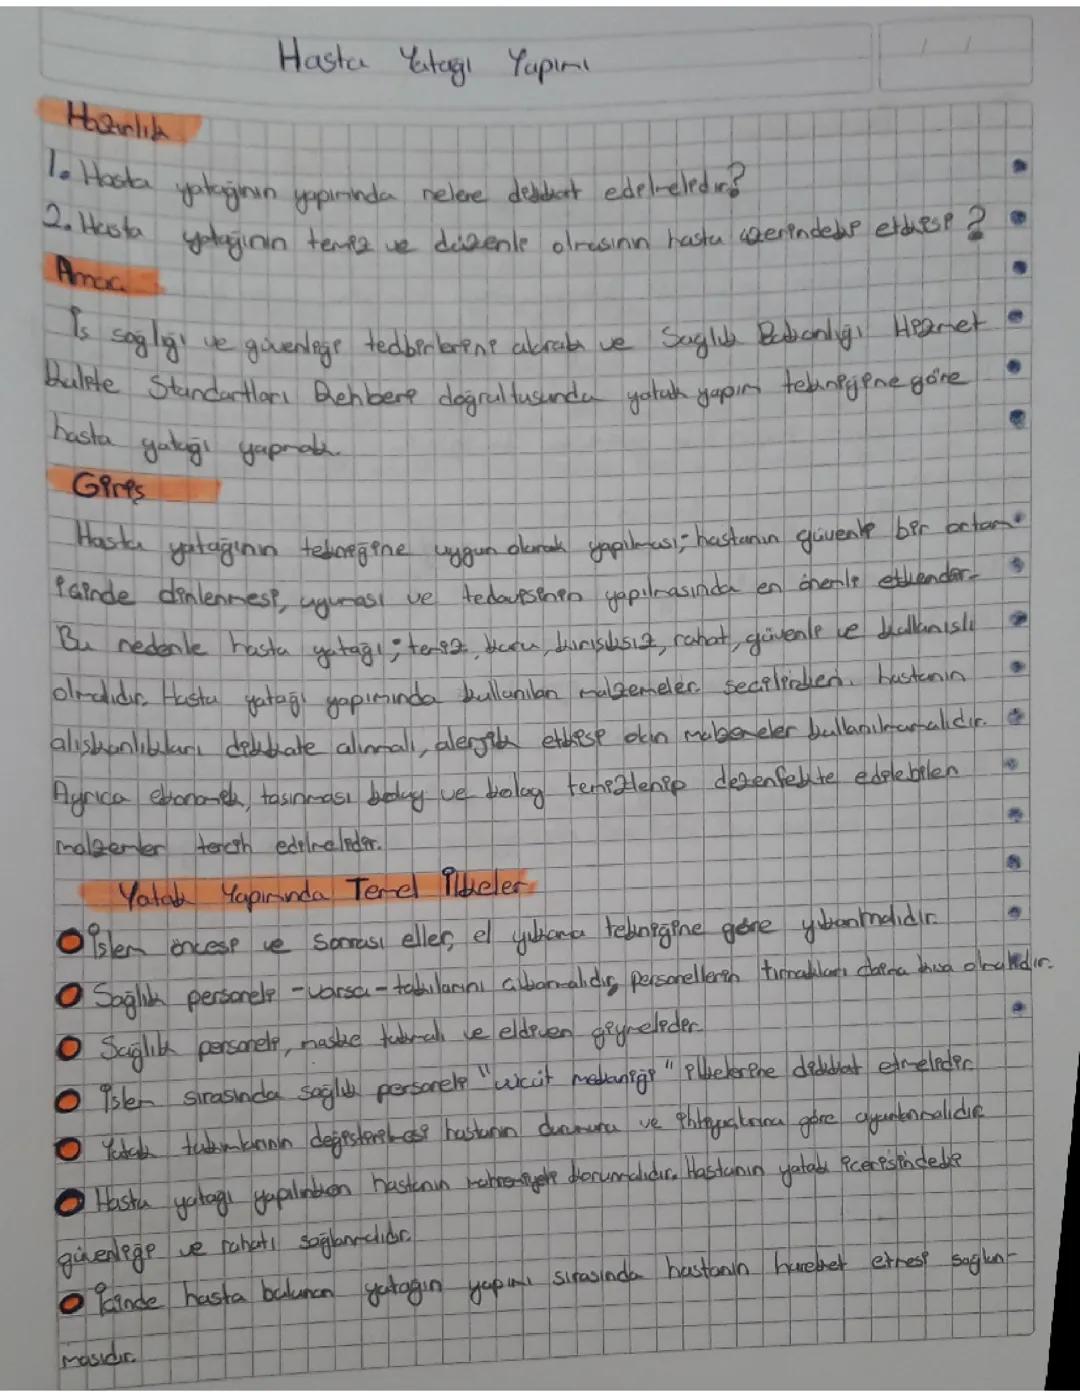 Hasta Yatağı Yapımı
Hazırlık
1. Hasta yatağının yapımında nelere dikkat edilmelidir?
2. Hasta yatağının temiz ve düzenli olmasının hasta üzerindeki etkisi?
Amaç
İş sağlığı ve güvenliği tedbirlerini alarak ve Sağlık Bakanlığı Hizmet
Kalite Standartları Rehberi doğrultusunda yatak yapım tekniğine göre
hasta yatağı yapmak.
Giriş
Hasta yatağının tekniğine uygun olarak yapılması; hastanın güvenli bir ortam
içinde dinlenmesi, uyuması ve tedavisinin yapılmasında en önemli etkendir.
Bu nedenle hasta yatağı; temiz, kuru, kırışıksız, rahat, güvenli ve kullanışlı
olmalıdır. Hasta yatağı yapımında kullanılan malzemeler seçilirken hastanın
alışkanlıkları dikkate alınmalı, alerjik etkisi olan malzemeler kullanılmamalıdır.
Ayrıca ekonomik, taşınması kolay ve kolay temizlenip dezenfekte edilebilen
malzemler tercih edilmelidir.
Yatak Yapımında Temel İlkeler
● İşlem öncesi ve sonrası eller, el yıkama tekniğine göre yıkanmalıdır.
● Sağlık personeli -varsa- takılarını çıkarmalıdır, personellerin tırnakları daima kısa olmalıdır.
● Sağlık personeli, maske takmalı ve eldiven giymelidir.
● İşlem sırasında sağlık personeli "vücut mekaniği" ilkelerine dikkat etmelidir.
● Yatak takımlarının değiştirilmesi hastanın durumuna ve ihtiyaçlarına göre ayarlanmalıdır.
● Hasta yatağı yapılırken hastanın mahremiyeti korunmalıdır. Hastanın yatak içerisindeki
güvenliği ve rahatı sağlanmalıdır.
● İçinde hasta bulunan yatağın yapımı sırasında hastanın hareket etmesi sağlan-
masıdır.